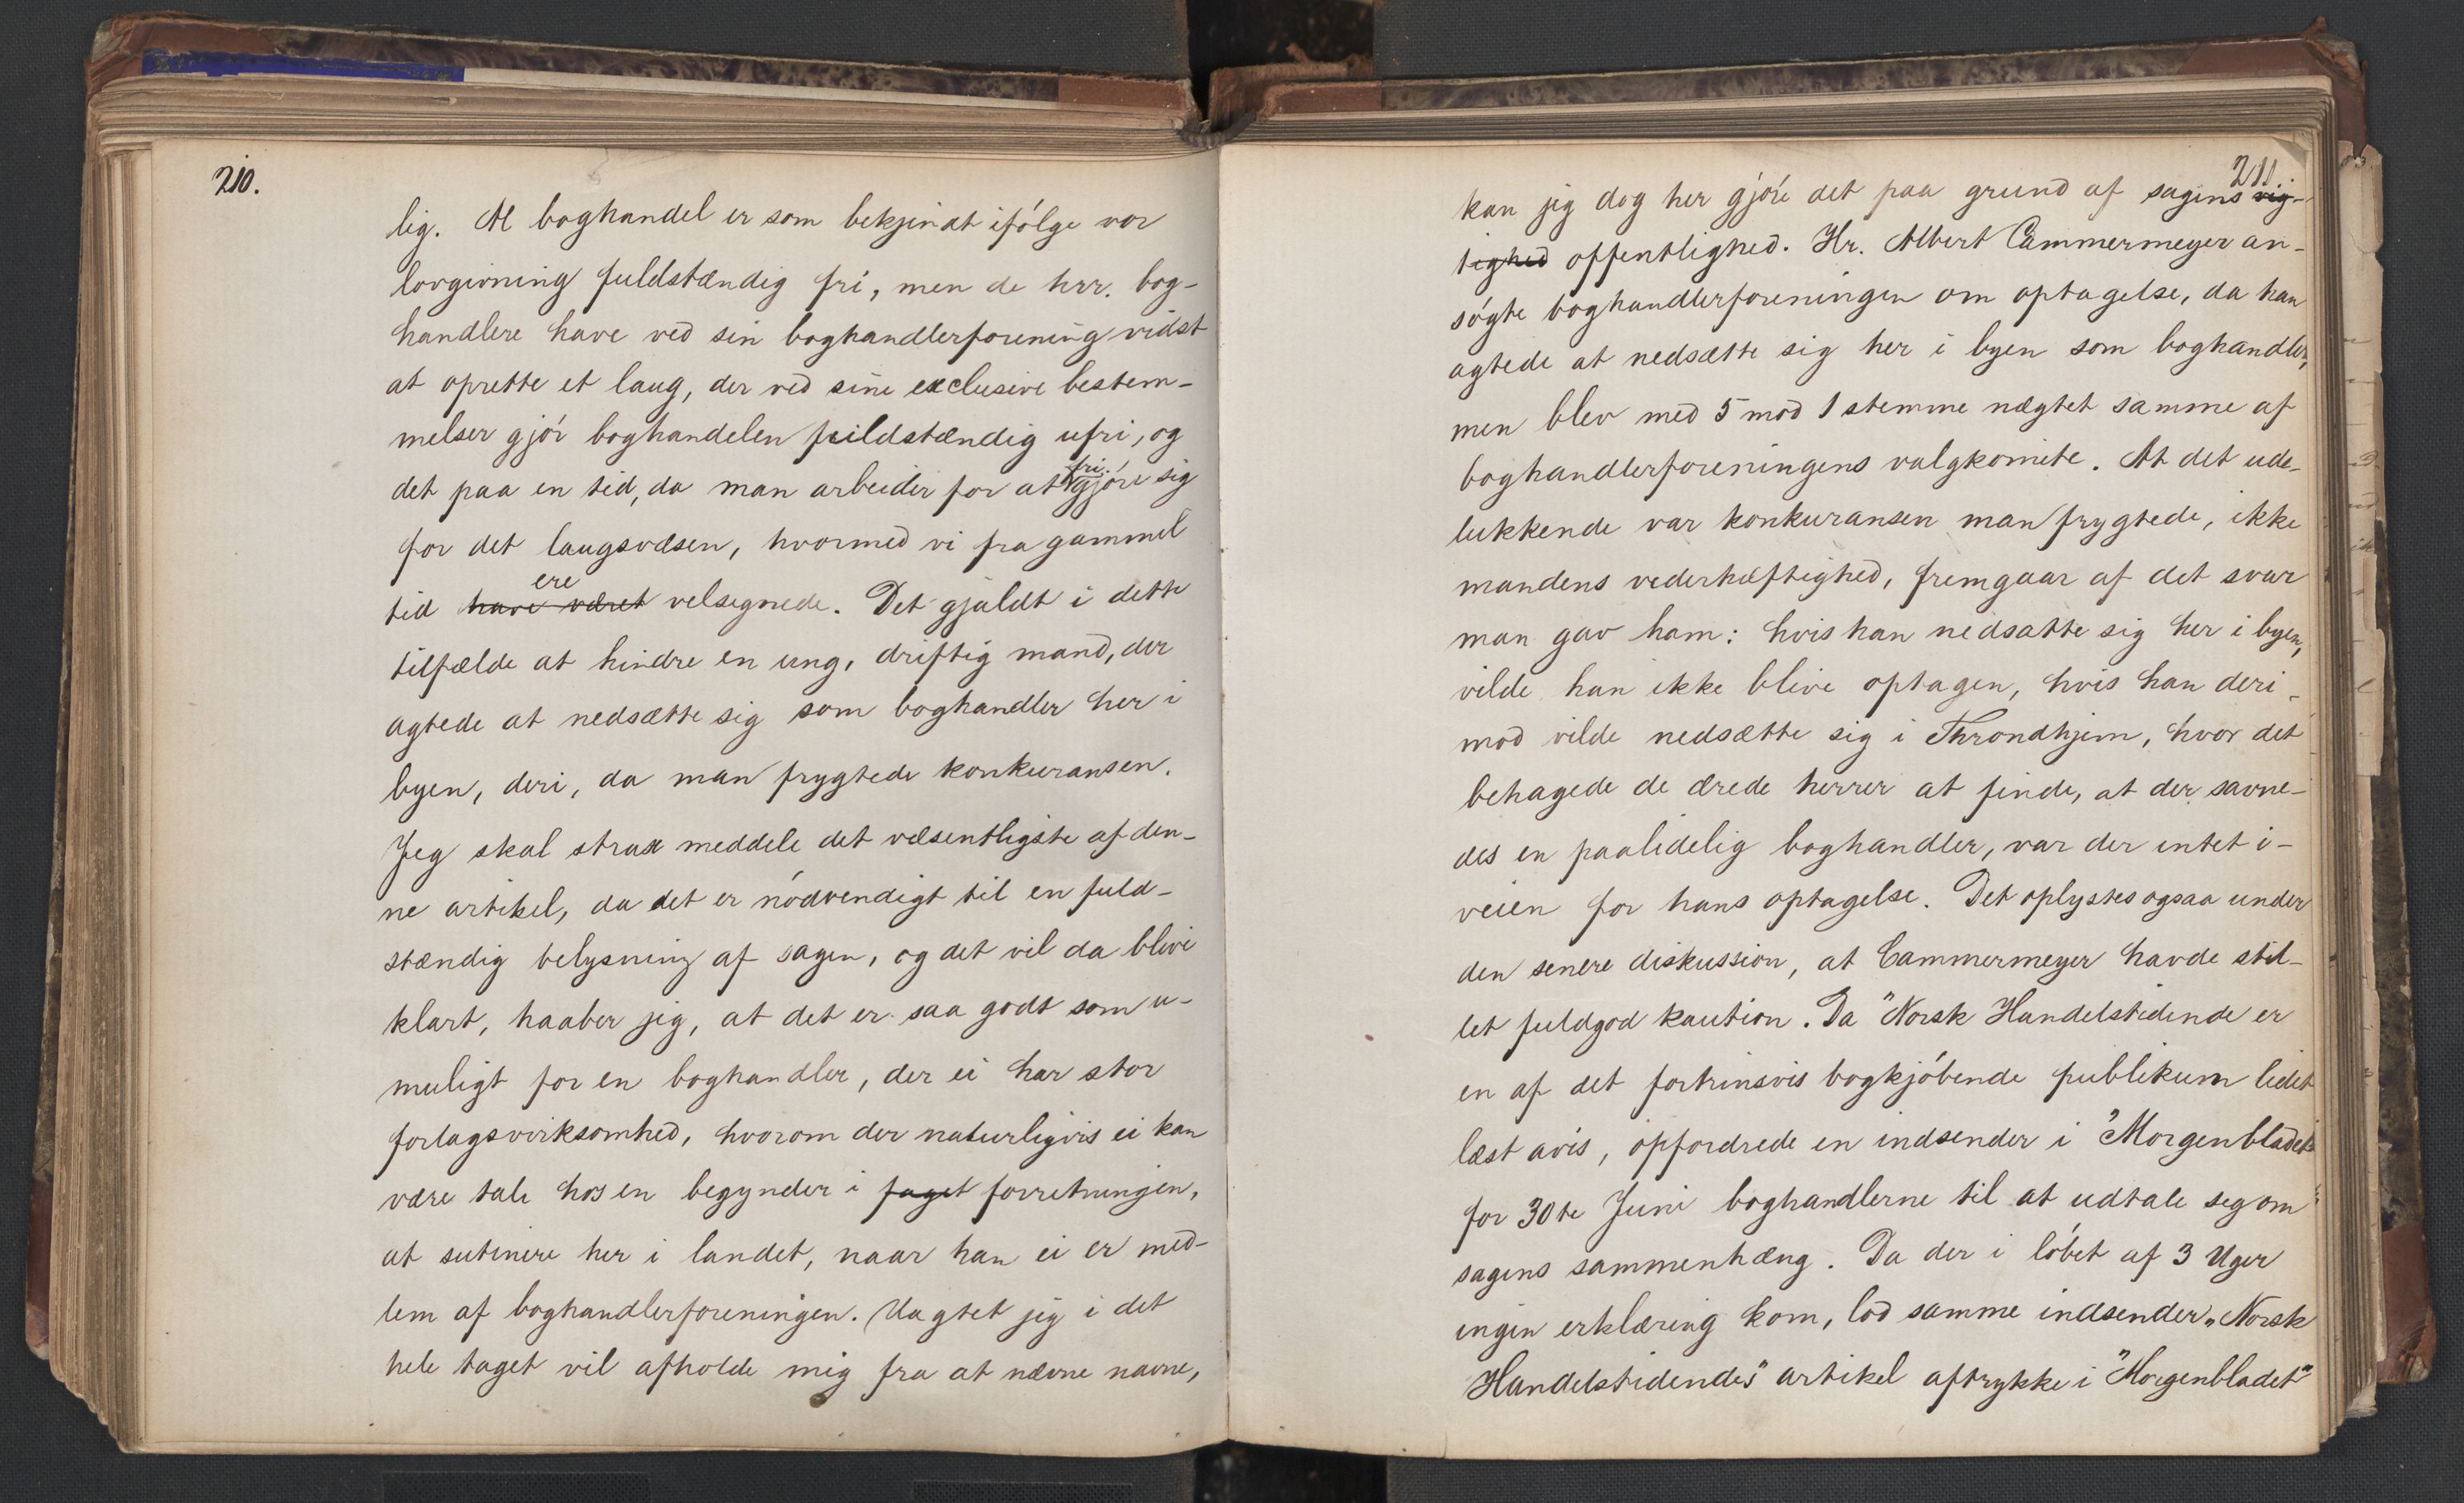 210.
lig. Al boghandel er som bekjendt ifólge vor
lovgivning fuldstændig fri, men de hrr. bog-
handlere have ved sin boghandlerforening vidst
at oprette et laug, der ved sine exclusive bestem-
melser gjór boghandelen fuldstændig ufri, og
det paa en tid, da man arbeider for at fri gjóre sig
for det laugsvæsen, hvormed vi fra gammel
tid have været ere velsegnede. Det gjaldt i dette
tilfælde at hindre en ung, driftig mand, der
agtede at nedsætte sig som boghandler her i
byen, deri, da man frygtede konkuransen.
Jeg skal strax meddele det væsentligste af den-
ne artikel, da det er nódvendigt til en fuld-
stændig belysning af sagen, og det vil da blive
klart, haaber jeg, at det er saa godt som u-
muligt for en boghandler, der ei har stor
forlagsvirksomhed, hvorom der naturligvis ei kan
være tale hos en begynder i faget forretningen,
at sutenere her i landet, naar han ei er med-
lem af boghandlerforeningen. Uagtet jeg i det
hele taget vil afholde mig fra at nævne navne,
211
kan jeg dog her gjóre det paa grund af sagens vig-
tighed offentlighed. Hr. Albert Cammermeyer an-
sógte boghandlerforeningen om optagelse, da han
agtede at nedsætte sig her i byen som boghandler,
men blev med 5 mod 1 stemme nægtet samme af
boghandlerforeningens valgkomite. At det ude-
lukkende var konkuransen man frygtede, ikke
mandens vederhæftighed, fremgaar af det svar
man gav ham: hvis han nedsatte sig her i byen,
vilde han ikke blive optagen, hvis han deri-
mod vilde nedsætte sig i Throndhjem, hvor det
behagede de ærede herrer at finde, at der savne-
des en paalidelig boghandler, var der intet i-
veien for hans optagelse. Det oplystes ogsaa under
den senere diskussion, at Cammermeyer havde stil-
let fuldgod kaution. Da "Norsk Handelstidende er
en af det fortrinsvis bogkjóbende publikum lidet
læst avis, opfordrede en indsender i "Morgenbladet"
for 30te Juni boghandlerne til at udtale seg om
sagens sammenhæng. Da der i lóbet af 3 Uger
ingen erklæring kom, lod samme indsender „Norsk
Handelstidendes" artikel aftrykke i "Morgenbladet"